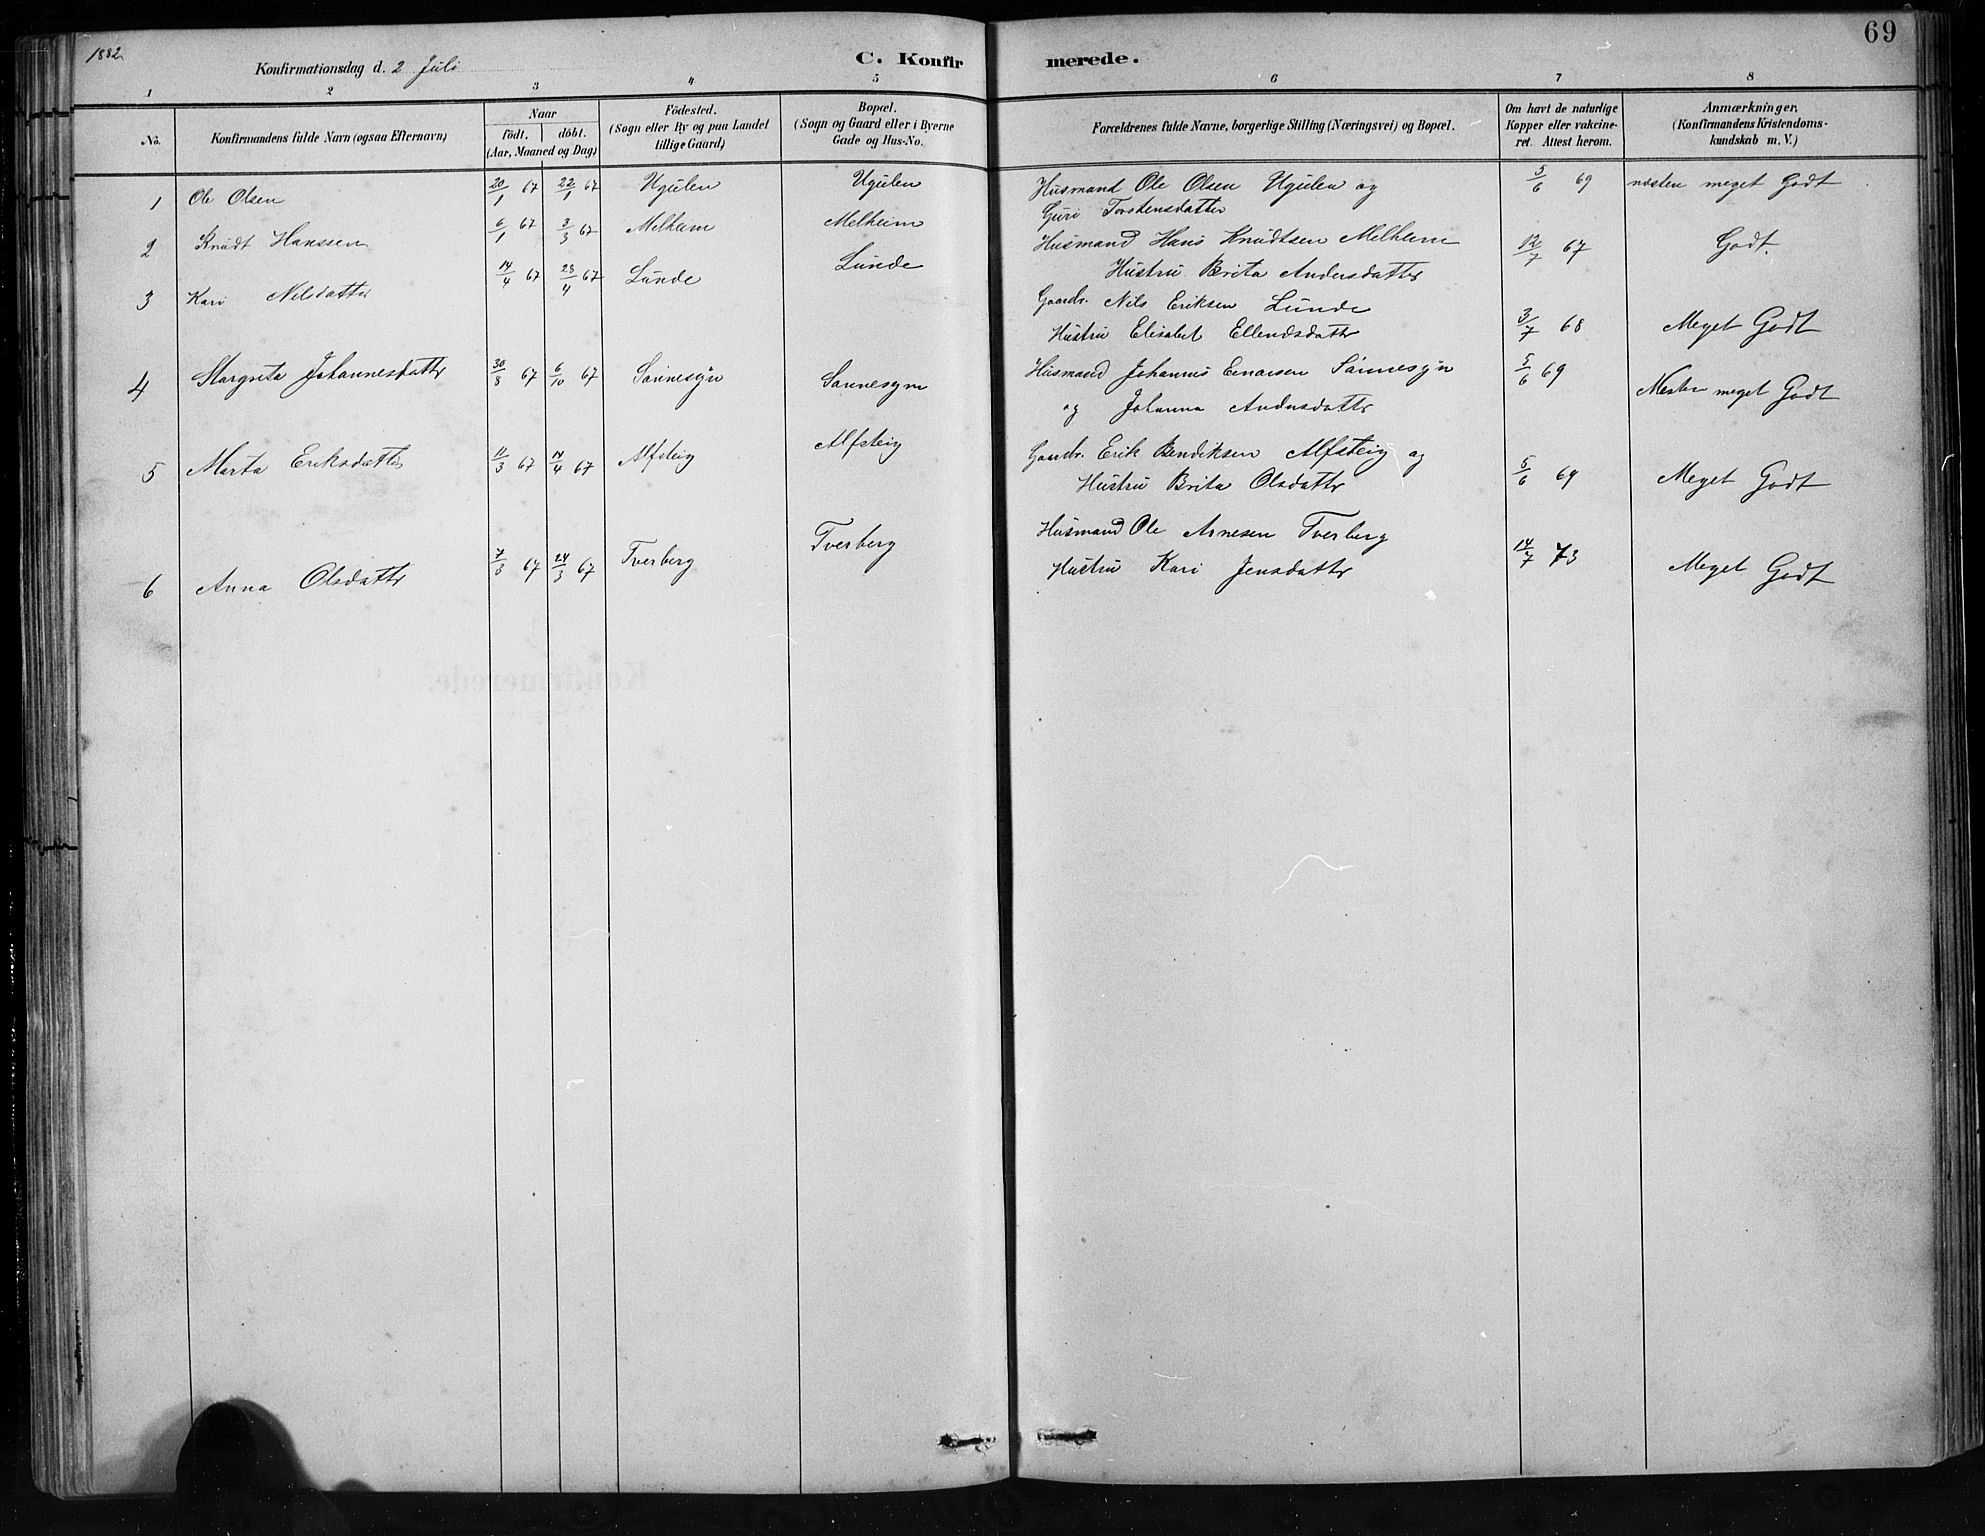 69
1882
Konfirmationsdag d. 2 Juli
C. Konfir merede.
1 2 3 4 5 6 7 8
No.
Konfirmandens fulde Navn (ogsaa Efternavn)
Naar
födt. döbt.
(Aar, Maaned og Dag)
Födested.
(Sogn eller By og paa Landet
tillige Gaard)
Bopæl.
(Sogn og Gaard eller i Byerne
Gade og Hus-No.
Forældrenes fulde Navne, borgerlige Stilling (Næringsvei) og Bopæl.
Om havt de naturlige
Kopper eller vakcine-
ret. Attest herom.
Anmærkninger.
(Konfirmandens Kristendoms-
kundskab m. V.)
1 Ole Olsen 20/1 67 22/1 67 Ugulen Ugulen Husmand Ole Olsen Ugulen og 5/6 69 næsten meget Godt
Guri Torstensdatter
2 Knudt Hanssen 6/1 67 3/3 67 Melheim Melheim Husmand Hans Knudtsen Melheim 12/7 67 Godt.
Hustru Brita Andersdatter
3 Kari Nilsdatter 14/4 67 28/4 67 Lunde Lunde Gaardr. Nils Eriksen Lunde
Hustru Elisabet Ellendsdatter 3/7 68 Meget Godt
4 Margreta Johannesdatter 30/8 67 6/10 67 Sønnesyn Sønnesyn Husmand Johannes Einarsen Sønnesyn 5/6 69 Næsten meget Godt
og Johanna Andersdatter
5 Marta Eriksdatter 11/3 67 14/4 67 Alfsteig Alfsteig Gaardr. Erik Bendiksen Alfsteig og
Hustru Brita Olsdatter 5/6 69 Meget Godt
6 Anna Olsdatter 7/3 67 24/3 67 Tverberg Tverberg Husmand Ole Arnesen Tverberg
Hustru Kari Jensdatter 14/7 73 Meget Godt